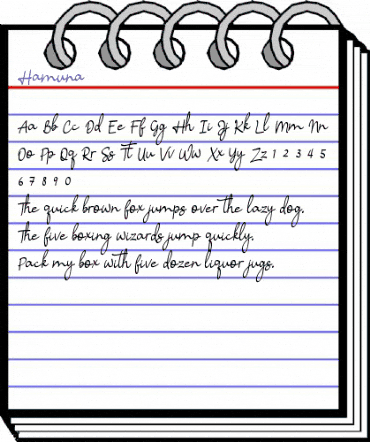 Hamuna
Aa Bb Cc Dd Ee Ff Gg Hh Ii Jj Kk Ll Mm Nn
Oo Pp Qq Rr Ss Tt Uu Vv Ww Xx Yy Zz 1 2 3 4 5
6 7 8 9 0
The quick brown fox jumps over the lazy dog.
The five boxing wizards jump quickly.
Pack my box with five dozen liquor jugs.